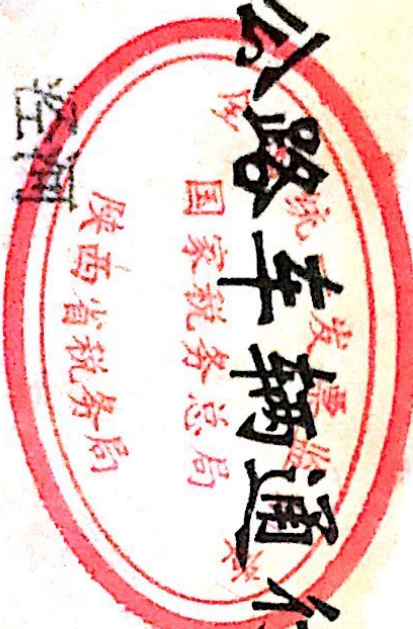 公路车辆通行
统发票监
国家税务总局
陕西省税务局